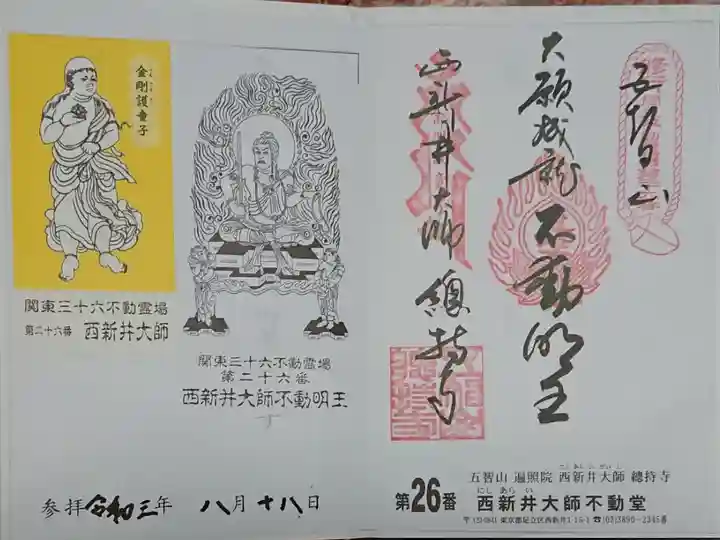 金剛護童子
関東三十六不動霊場
第二十六番 西新井大師
関東三十六不動霊場
第二十六番
西新井大師不動明王
参拝 令和三年 八月十八日
五智山
大願成就不動明王
西新井大師總持寺
五智山 遍照院 西新井大師 總持寺
にし あらい だいし
第26番 西新井大師不動堂
にし あら い
〒123-0841 東京都足立区西新井1-15-1 ☎(03)3890-2345番